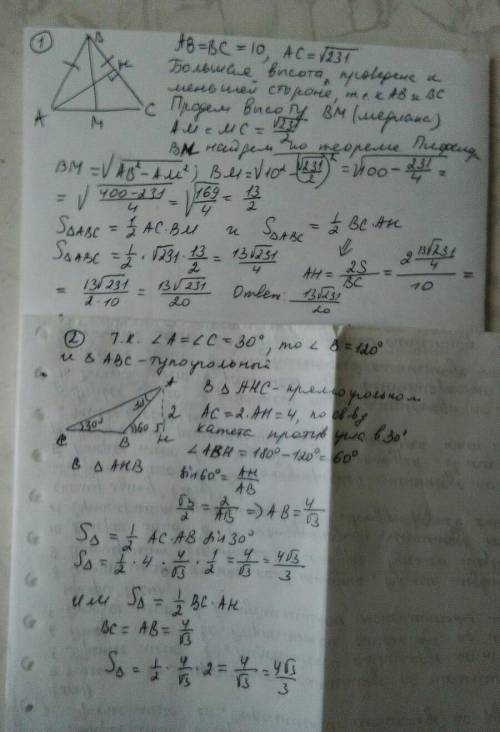 ① B
H
A M C
AB=BC=10, AC=√231
Большая высота, проведена к
меньшей стороне, т.к. к AB и BC
Провдем высоту BM (медиана)
AM = MC = √231/2
BM найдем по теореме Пифагора
BM = √(AB² - AM²); BM = √(10² - (√231/2)²) = √(100 - 231/4) =
= √((400-231)/4) = √(169/4) = 13/2
S△ABC = 1/2 AC·BM и S△ABC = 1/2 BC·AH
⇓
S△ABC = 1/2 · √231 · 13/2 = 13√231/4 AH = 2S/BC = (2 13√231/4)/10 =
= 13√231/(2·10) = 13√231/20 Ответ: 13√231/20
② Т.к. ∠A=∠C=30°, то ∠B=120°
и △ABC-тупоугольный
A
30°
2
C 30° B 60° H
В △AHC-прямоугольном
AC = 2·AH = 4, по св-ву
катета против угла в 30°
∠ABH = 180°-120° = 60°
В △AHB
sin60° = AH/AB
√3/2 = 2/AB ⇒ AB = 4/√3
S△ = 1/2 AC·AB sin30°
S△ = 1/2 · 4 · 4/√3 · 1/2 = 4/√3 = 4√3/3
или S△ = 1/2 BC·AH
BC = AB = 4/√3
S△ = 1/2 · 4/√3 · 2 = 4/√3 = 4√3/3